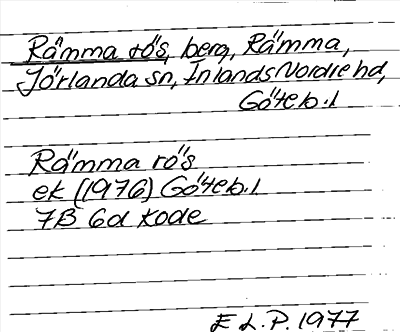 Rämma rös, berg, Rämma,
Jörlanda sn, Inlands Nordre hd,
Göteb. l
Rämma rös
ek (1976) Göteb. l
7B 6d Kode
E L. P. 1977